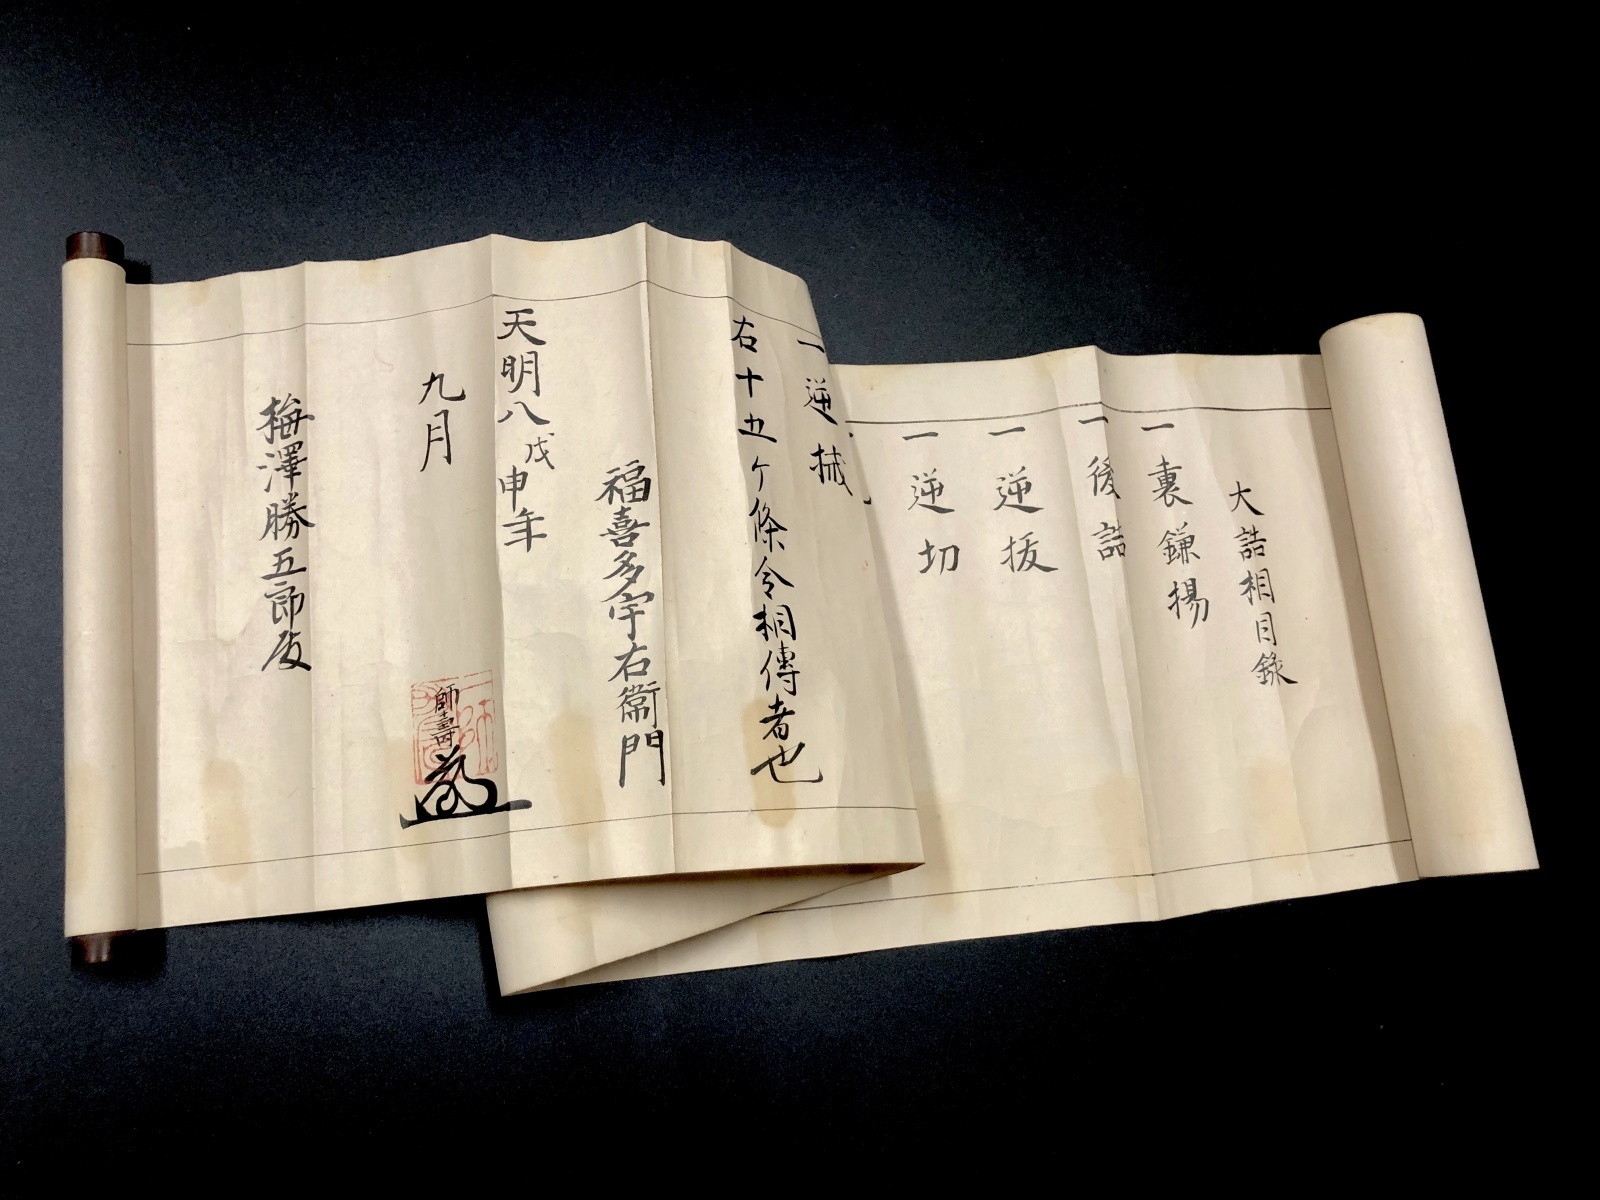 大詰相目録
一裏鎌揚
一後詰
一逆抜
一逆切
一逆
右十五ケ條令相傳者也
福喜多宇右衛門
天明八戊申年
九月
師壽
梅澤勝五郎殿